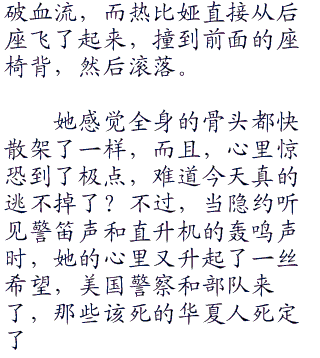 破血流，而热比娅直接从后
座飞了起来，撞到前面的座
椅背，然后滚落。
她感觉全身的骨头都快
散架了一样，而且，心里惊
恐到了极点，难道今天真的
逃不掉了？不过，当隐约听
见警笛声和直升机的轰鸣声
时，她的心里又升起了一丝
希望，美国警察和部队来
了，那些该死的华夏人死定
了